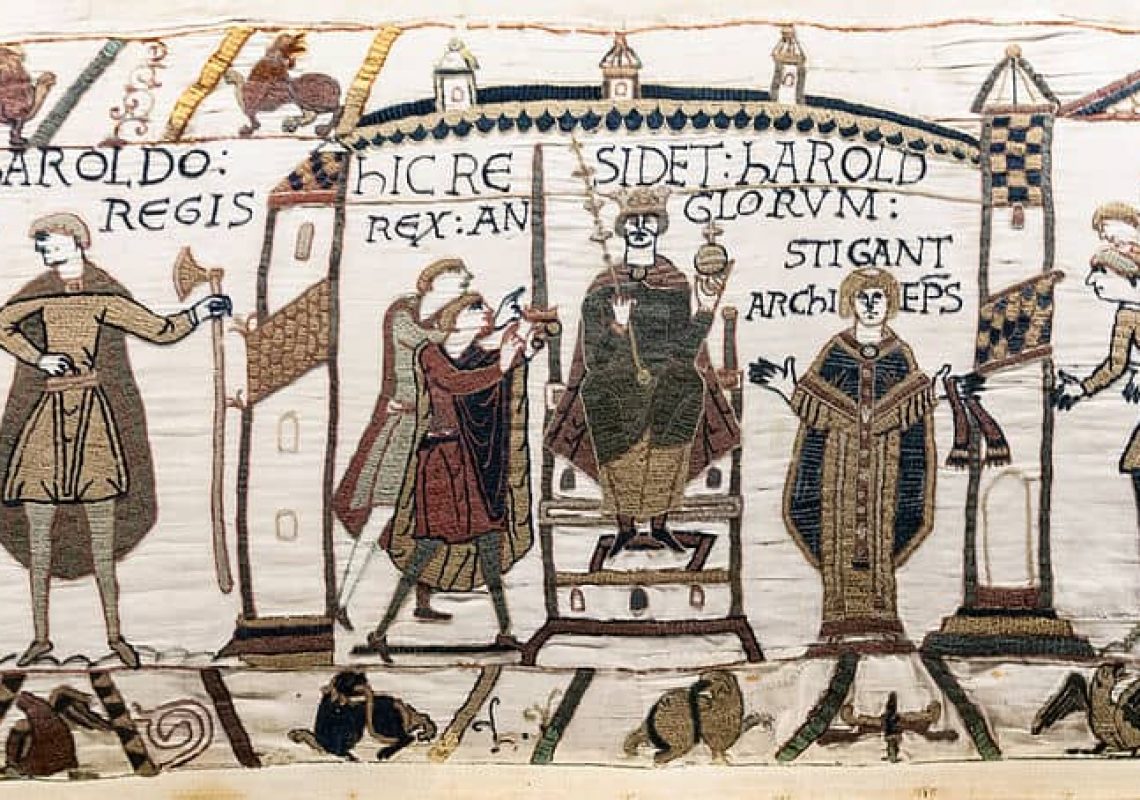 AROLDO:
REGIS
hIC RE SIDET: hAROLD
REX: AN GLORVM:
STIGANT
ARChI EP̄S